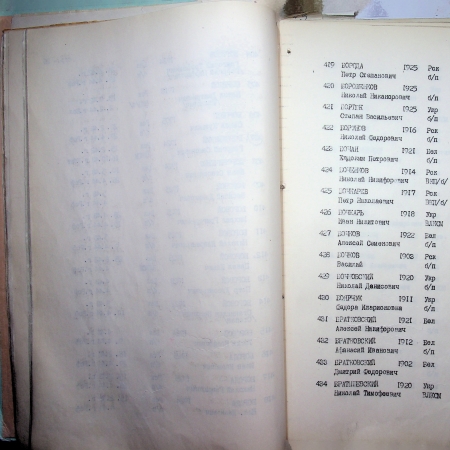 419 БОРОДА 1925 Рос
Петр Степанович б/п
420 1925
Николай Никанорович б/п
421 БОРТЯК 1925 Укр
Степан Васильевич б/п
422 1916 Рос
Николай Федорович б/п
423 БОЧАН 1921 Бел
Петрович б/п
424 1914 Рос
Николай Никифорович
425 БОЧКАРЕВ 1917 Рос
Петр Николаевич
426 БОЧКАРЬ 1918 Укр
Иван Игнатович ВЛКСМ
427 БОЧКОВ 1922 Бел
Алексей Семенович б/п
428 БОЧКОВ 1908 Рос
Василий б/п
429 БОЧКОВСКИЙ 1920 Укр
Николай Денисович б/п
430 БОЯРЧУК 1911 Укр
Федора Илларионовна б/п
431 БРАТКОВСКИЙ 1921 Бел
Алексей Никифорович
432 БРАТКОВСКИЙ 1912 Бел
Афанасий Иванович б/п
433 БРАТКОВСКИЙ 1902 Бел
Дмитрий Федорович б/п
434 1920 Укр
Николай Тимофеевич ВЛКСМ